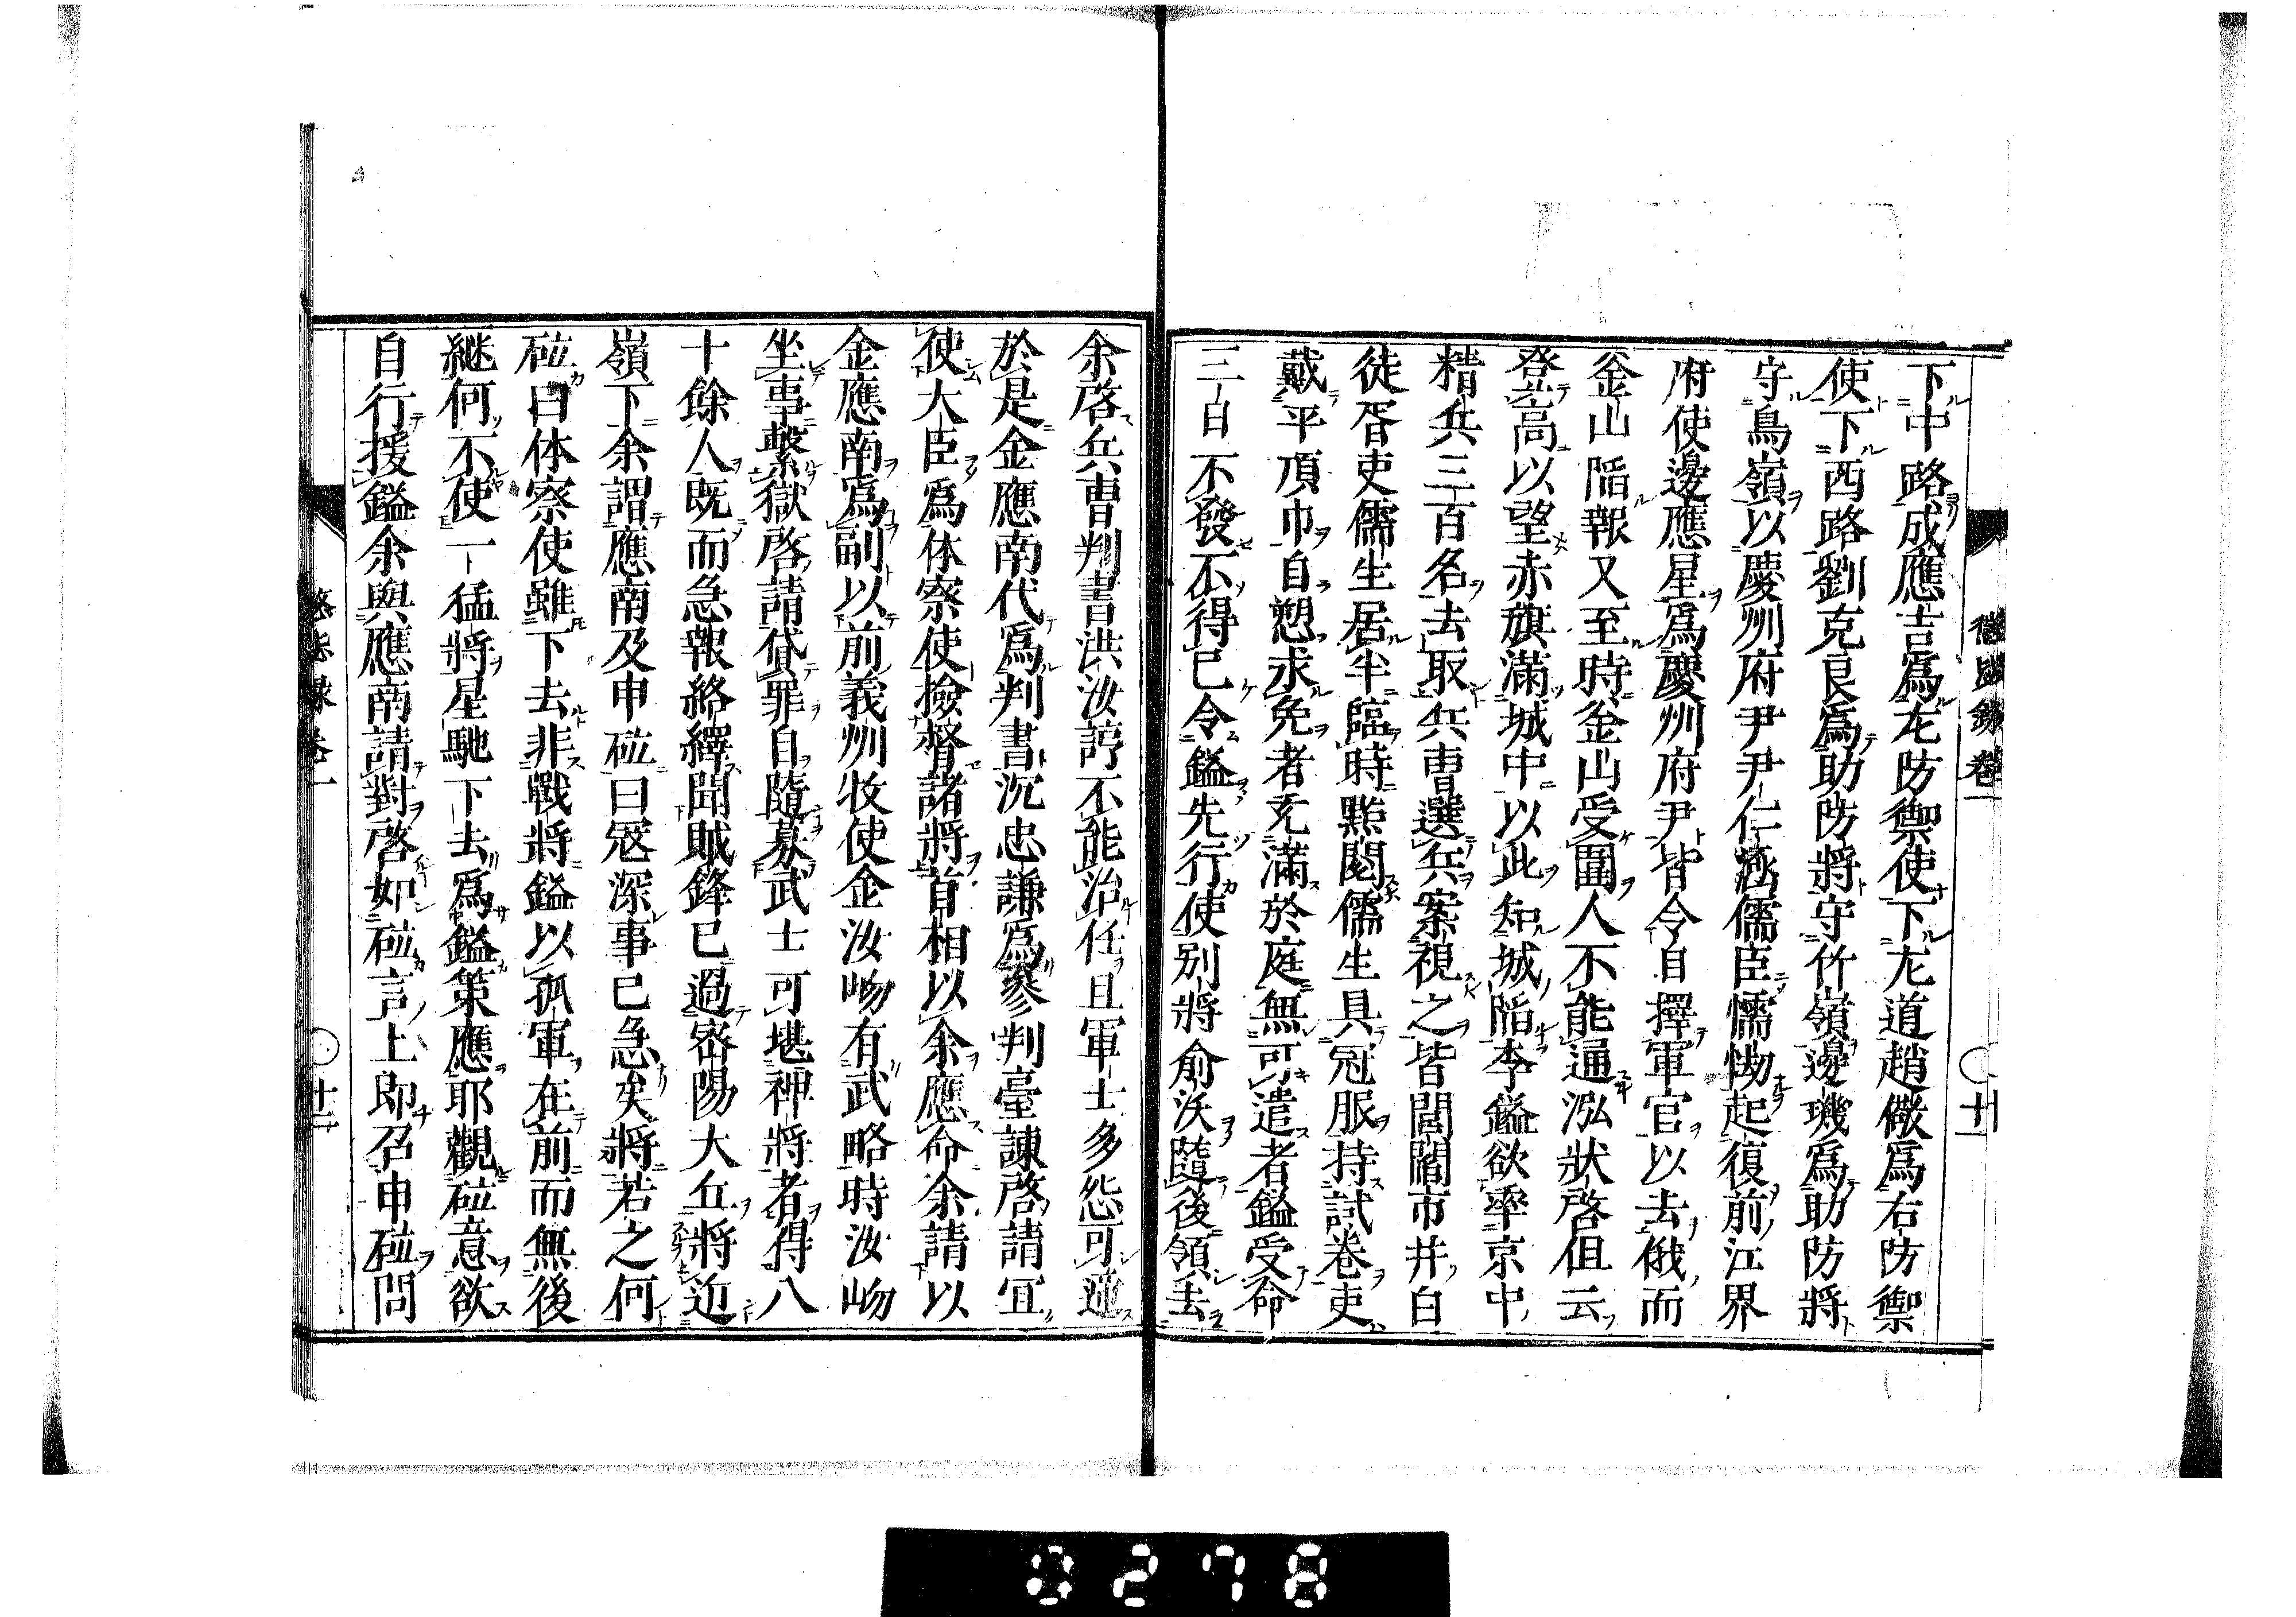 懲毖錄卷一
〇廿
下中路成應吉爲左防禦使下左道趙儆爲右防禦
使下西路劉克良爲助防將守竹嶺邊璣爲助防將
守鳥嶺以慶州府尹尹仁涵儒臣懦㥘起復前江界
府使邊應星爲慶州府尹皆令自擇軍官以去俄而
釜山陷報又至時釜山受圍人不能通泓狀啓但云
登高以望赤旗滿城中以此知城陷李鎰欲率京中
精兵三百名去取兵曹選兵案視之皆閭閻市井白
徒胥吏儒生居半臨時點閱儒生具冠服持試卷吏
戴平頂巾自愬求免者充滿於庭無可遣者鎰受命
三日不發不得已令鎰先行使別將俞沃隨後領去
余啓兵曹判書洪汝諄不能治任且軍士多怨可遞
於是金應南代爲判書沉忠謙爲參判臺諫啓請宜
使大臣爲体察使撿督諸將首相以余應命余請以
金應南爲副以前義州牧使金汝岉有武略時汝岉
坐事繫獄啓請貸罪自隨募武士可堪裨將者得八
十餘人既而急報絡繹聞賊鋒已過密陽大丘將近
嶺下余謂應南及申砬曰寇深事已急矣將若之何
砬曰体察使雖下去非戰將鎰以孤軍在前而無後
継何不使一猛將星馳下去爲鎰策應耶觀砬意欲
自行援鎰余與應南請對啓如砬言上即召申砬問
懲毖録卷一
〇廿一
0278